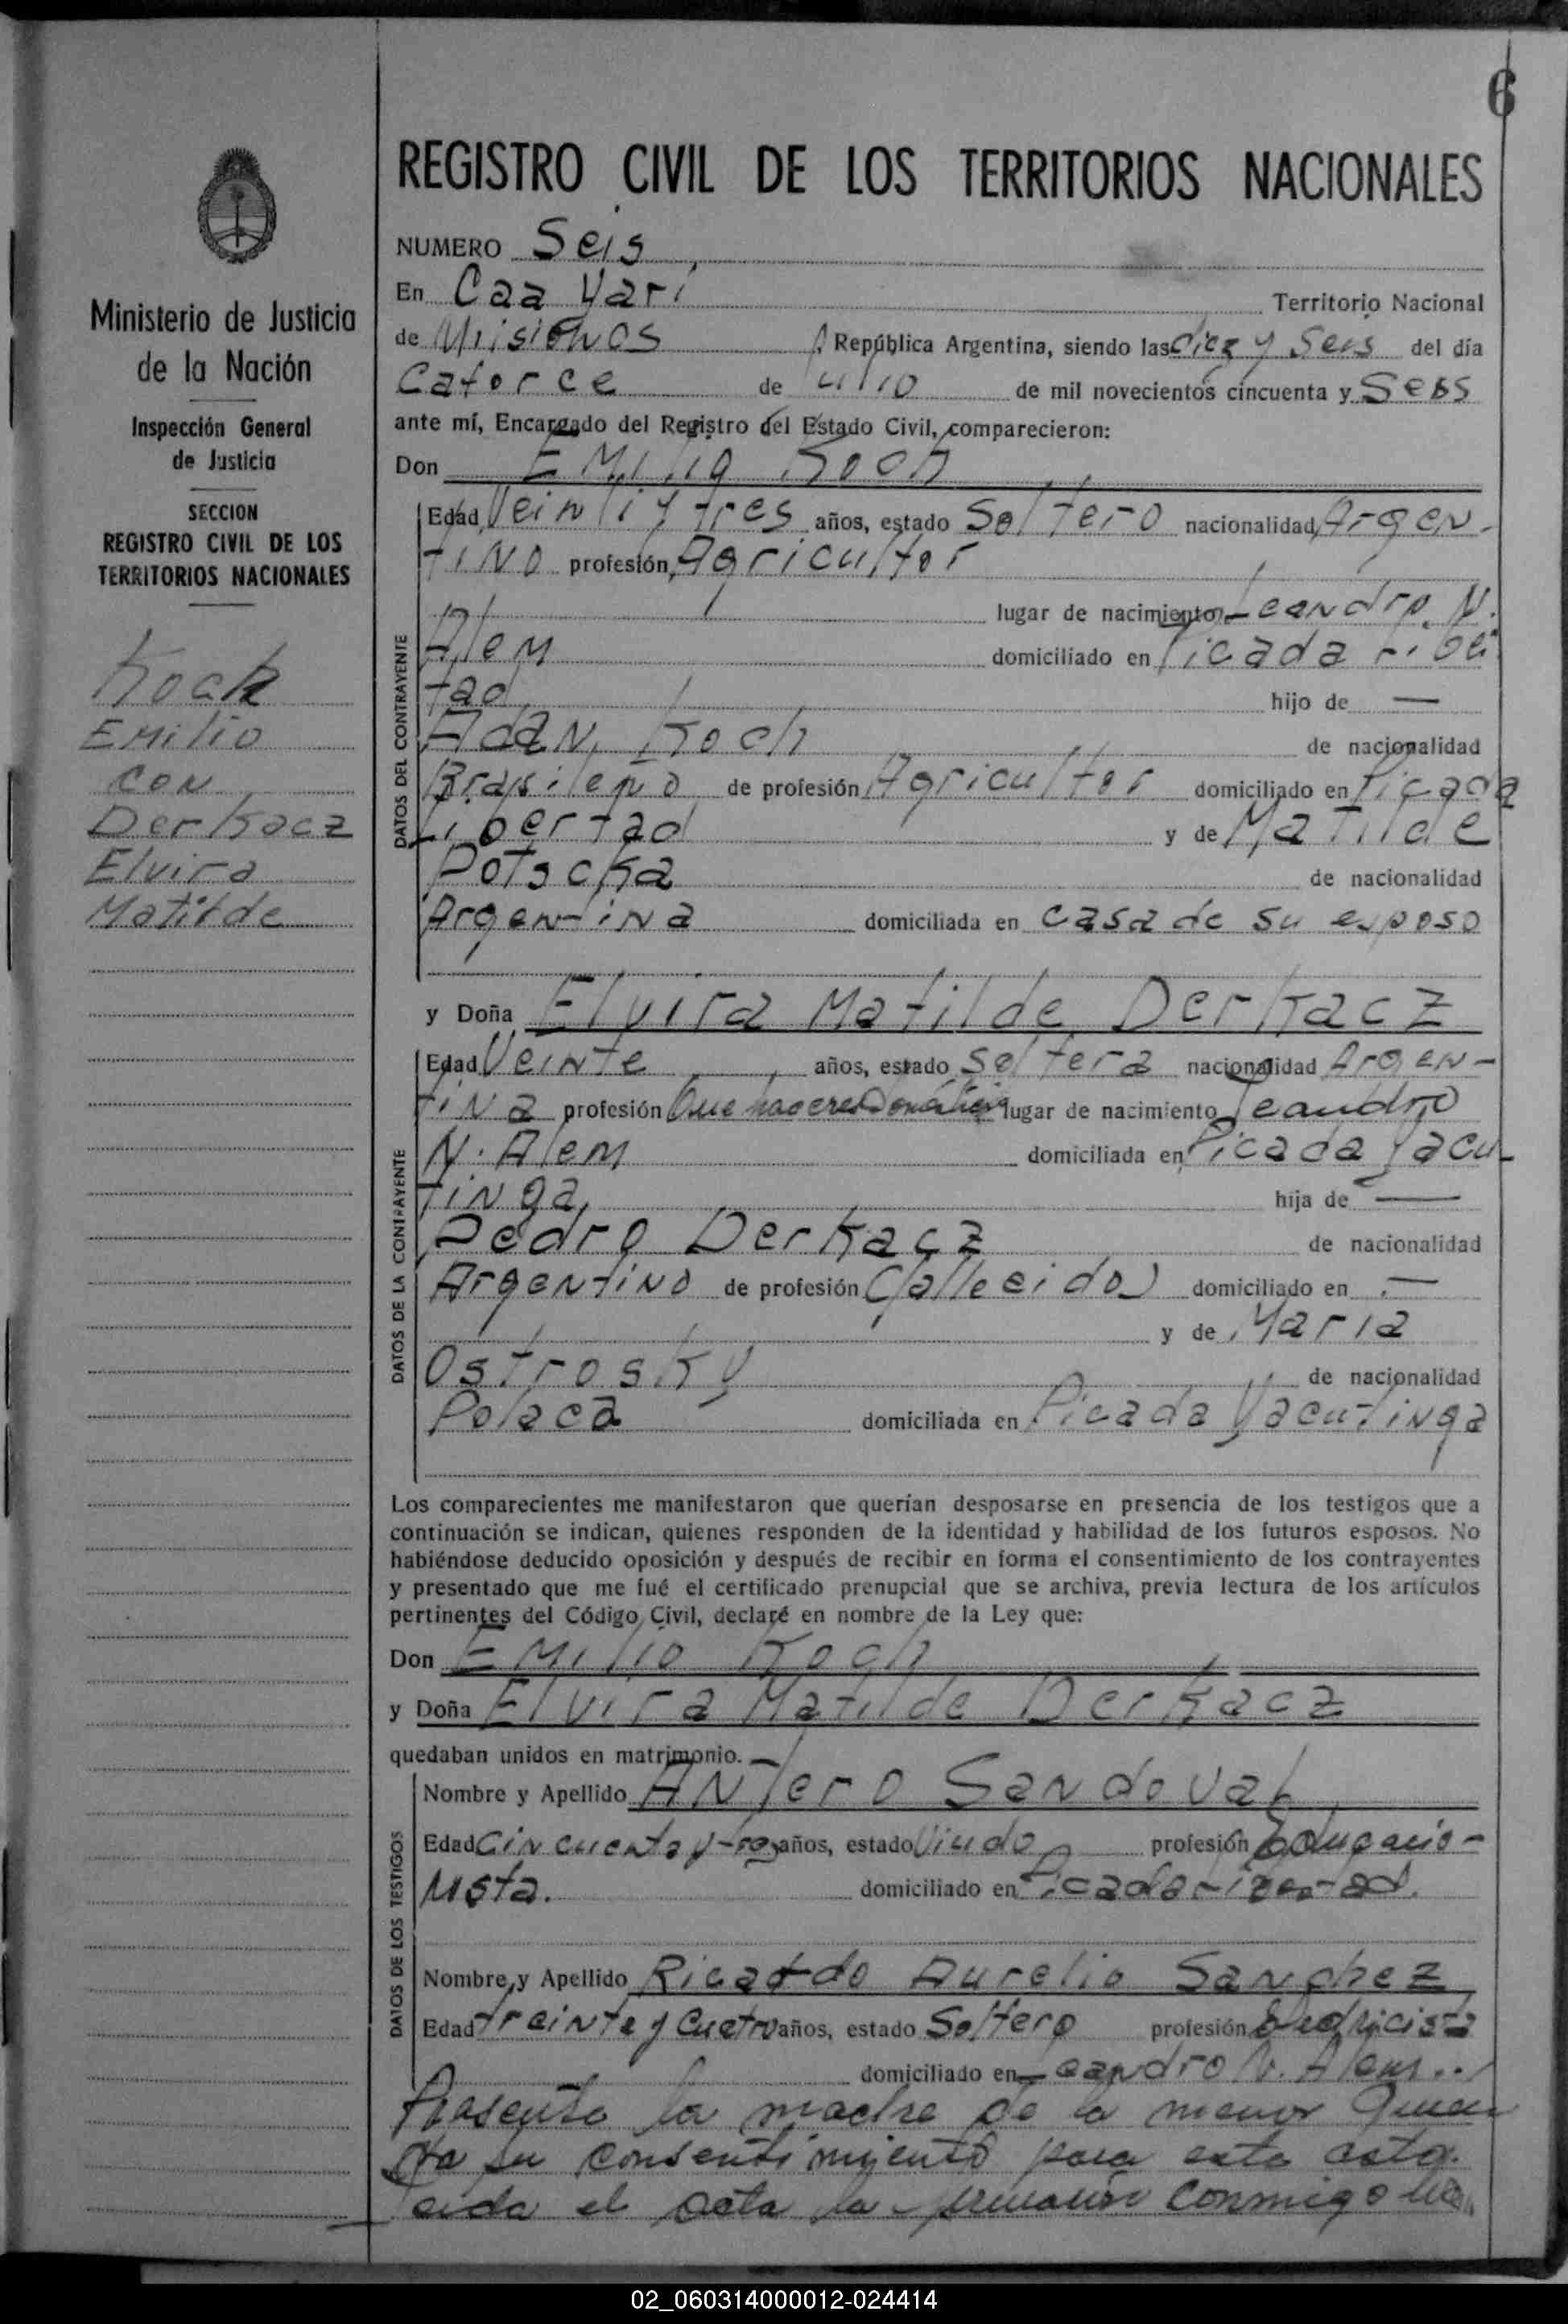 6
REGISTRO CIVIL DE LOS TERRITORIOS NACIONALES
NUMERO Seis
En Caa Yari Territorio Nacional
de Misiones, República Argentina, siendo las diez y Seis del día
Catorce de Julio de mil novecientos cincuenta y Seis
ante mí, Encargado del Registro del Estado Civil, comparecieron:
Don Emilio Koch
Edad Veinti y tres años, estado Soltero nacionalidad Argen-
tino profesión Agricultor
lugar de nacimiento Leandro N.
Alem domiciliado en Picada Liber
tad hijo de —
Adan Koch de nacionalidad
Brasileño de profesión Agricultor domiciliado en Picada
Libertad y de Matilde
Potscka de nacionalidad
Argentina domiciliada en casa de su esposo
y Doña Elvira Matilde Derkacz
Edad Veinte años, estado Soltera nacionalidad Argen-
tina profesión Que haceres Domésticos lugar de nacimiento Leandro
N. Alem domiciliada en Picada Yacu-
tinga hija de —
Pedro Derkacz de nacionalidad
Argentino de profesión (fallecido) domiciliado en —
y de Maria
Ostrosky de nacionalidad
Polaca domiciliada en Picada Yacutinga
Los comparecientes me manifestaron que querían desposarse en presencia de los testigos que a
continuación se indican, quienes responden de la identidad y habilidad de los futuros esposos. No
habiéndose deducido oposición y después de recibir en forma el consentimiento de los contrayentes
y presentado que me fué el certificado prenupcial que se archiva, previa lectura de los artículos
pertinentes del Código Civil, declaré en nombre de la Ley que:
Don Emilio Koch
y Doña Elvira Matilde Derkacz
quedaban unidos en matrimonio.
Nombre y Apellido Antero Sandoval
Edad Cincuenta y tres años, estado Viudo profesión Educacio-
nista. domiciliado en Picada Libertad.
Nombre y Apellido Ricardo Aurelio Sanchez
Edad treinta y Cuatro años, estado Soltero profesión Eledricista
domiciliado en Leandro N. Alem..
Presente la madre de la menor Quien
da su consentimiento para este acto.
Leida el acta la firmaron conmigo los
Ministerio de Justicia
de la Nación
Inspección General
de Justicia
SECCION
REGISTRO CIVIL DE LOS
TERRITORIOS NACIONALES
Koch
Emilio
con
Derkacz
Elvira
Matilde
DATOS DEL CONTRAYENTE
DATOS DE LA CONTRAYENTE
DATOS DE LOS TESTIGOS
02_060314000012-024414